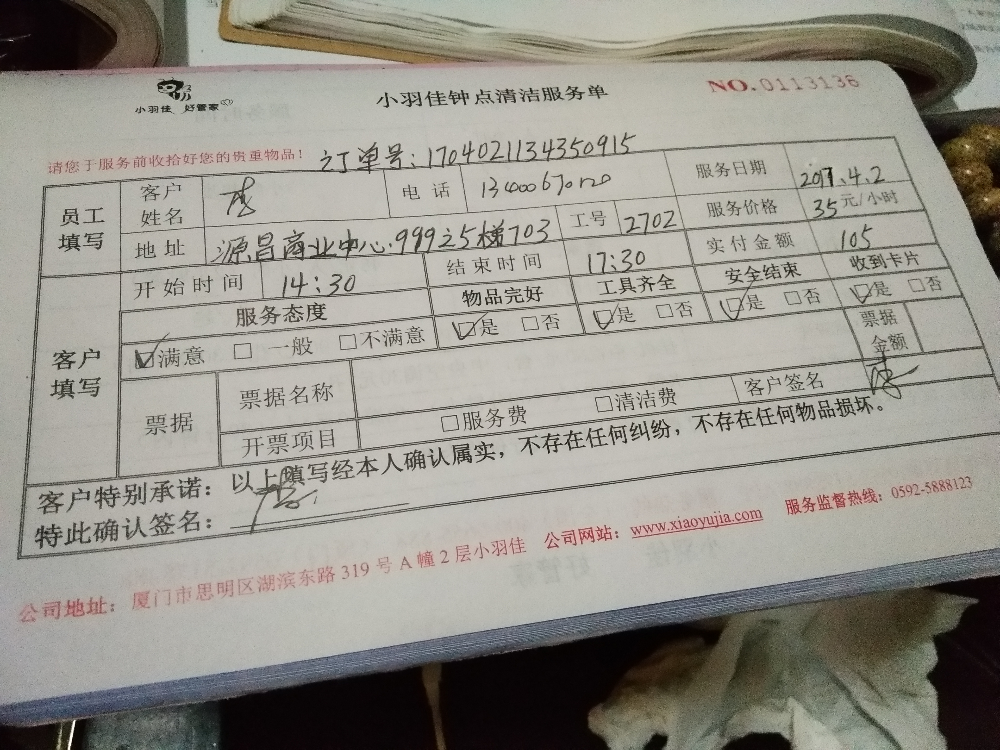 小羽佳 好管家
小羽佳钟点清洁服务单
NO.0113136
请您于服务前收拾好您的贵重物品！
订单号:1704021134350915
员工填写
客户姓名
电话
服务日期 2017.4.2
地址 源昌商业中心.99925梯703
工号 2702
服务价格 35元/小时
开始时间 14:30
结束时间 17:30
实付金额 105
客户填写
服务态度 物品完好 工具齐全 安全结束 收到卡片
☑满意 □一般 □不满意 ☑是 □否 ☑是 □否 ☑是 □否 ☑是 □否
票据
票据名称
票据金额
开票项目 □服务费 □清洁费
客户签名
客户特别承诺：以上填写经本人确认属实，不存在任何纠纷，不存在任何物品损坏。
特此确认签名：
公司地址：厦门市思明区湖滨东路319号A幢2层小羽佳 公司网站：www.xiaoyujia.com 服务监督热线：0592-5888123